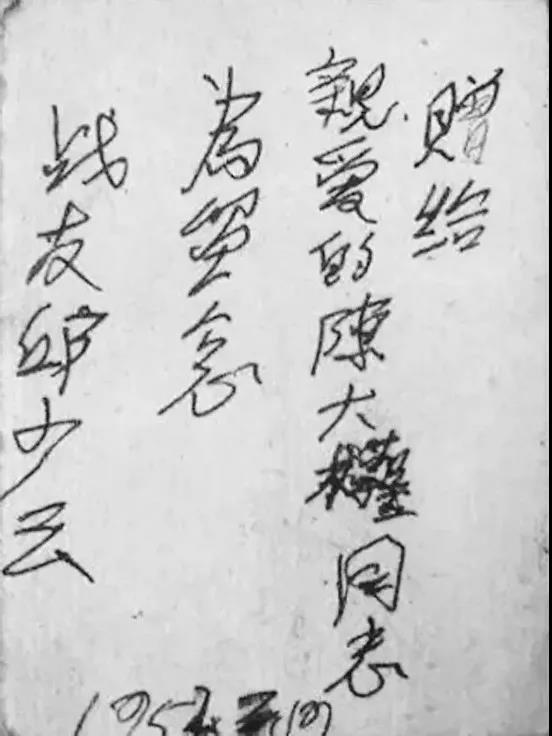 贈給
親爱的陳大權同志
為留念
战友邱少云